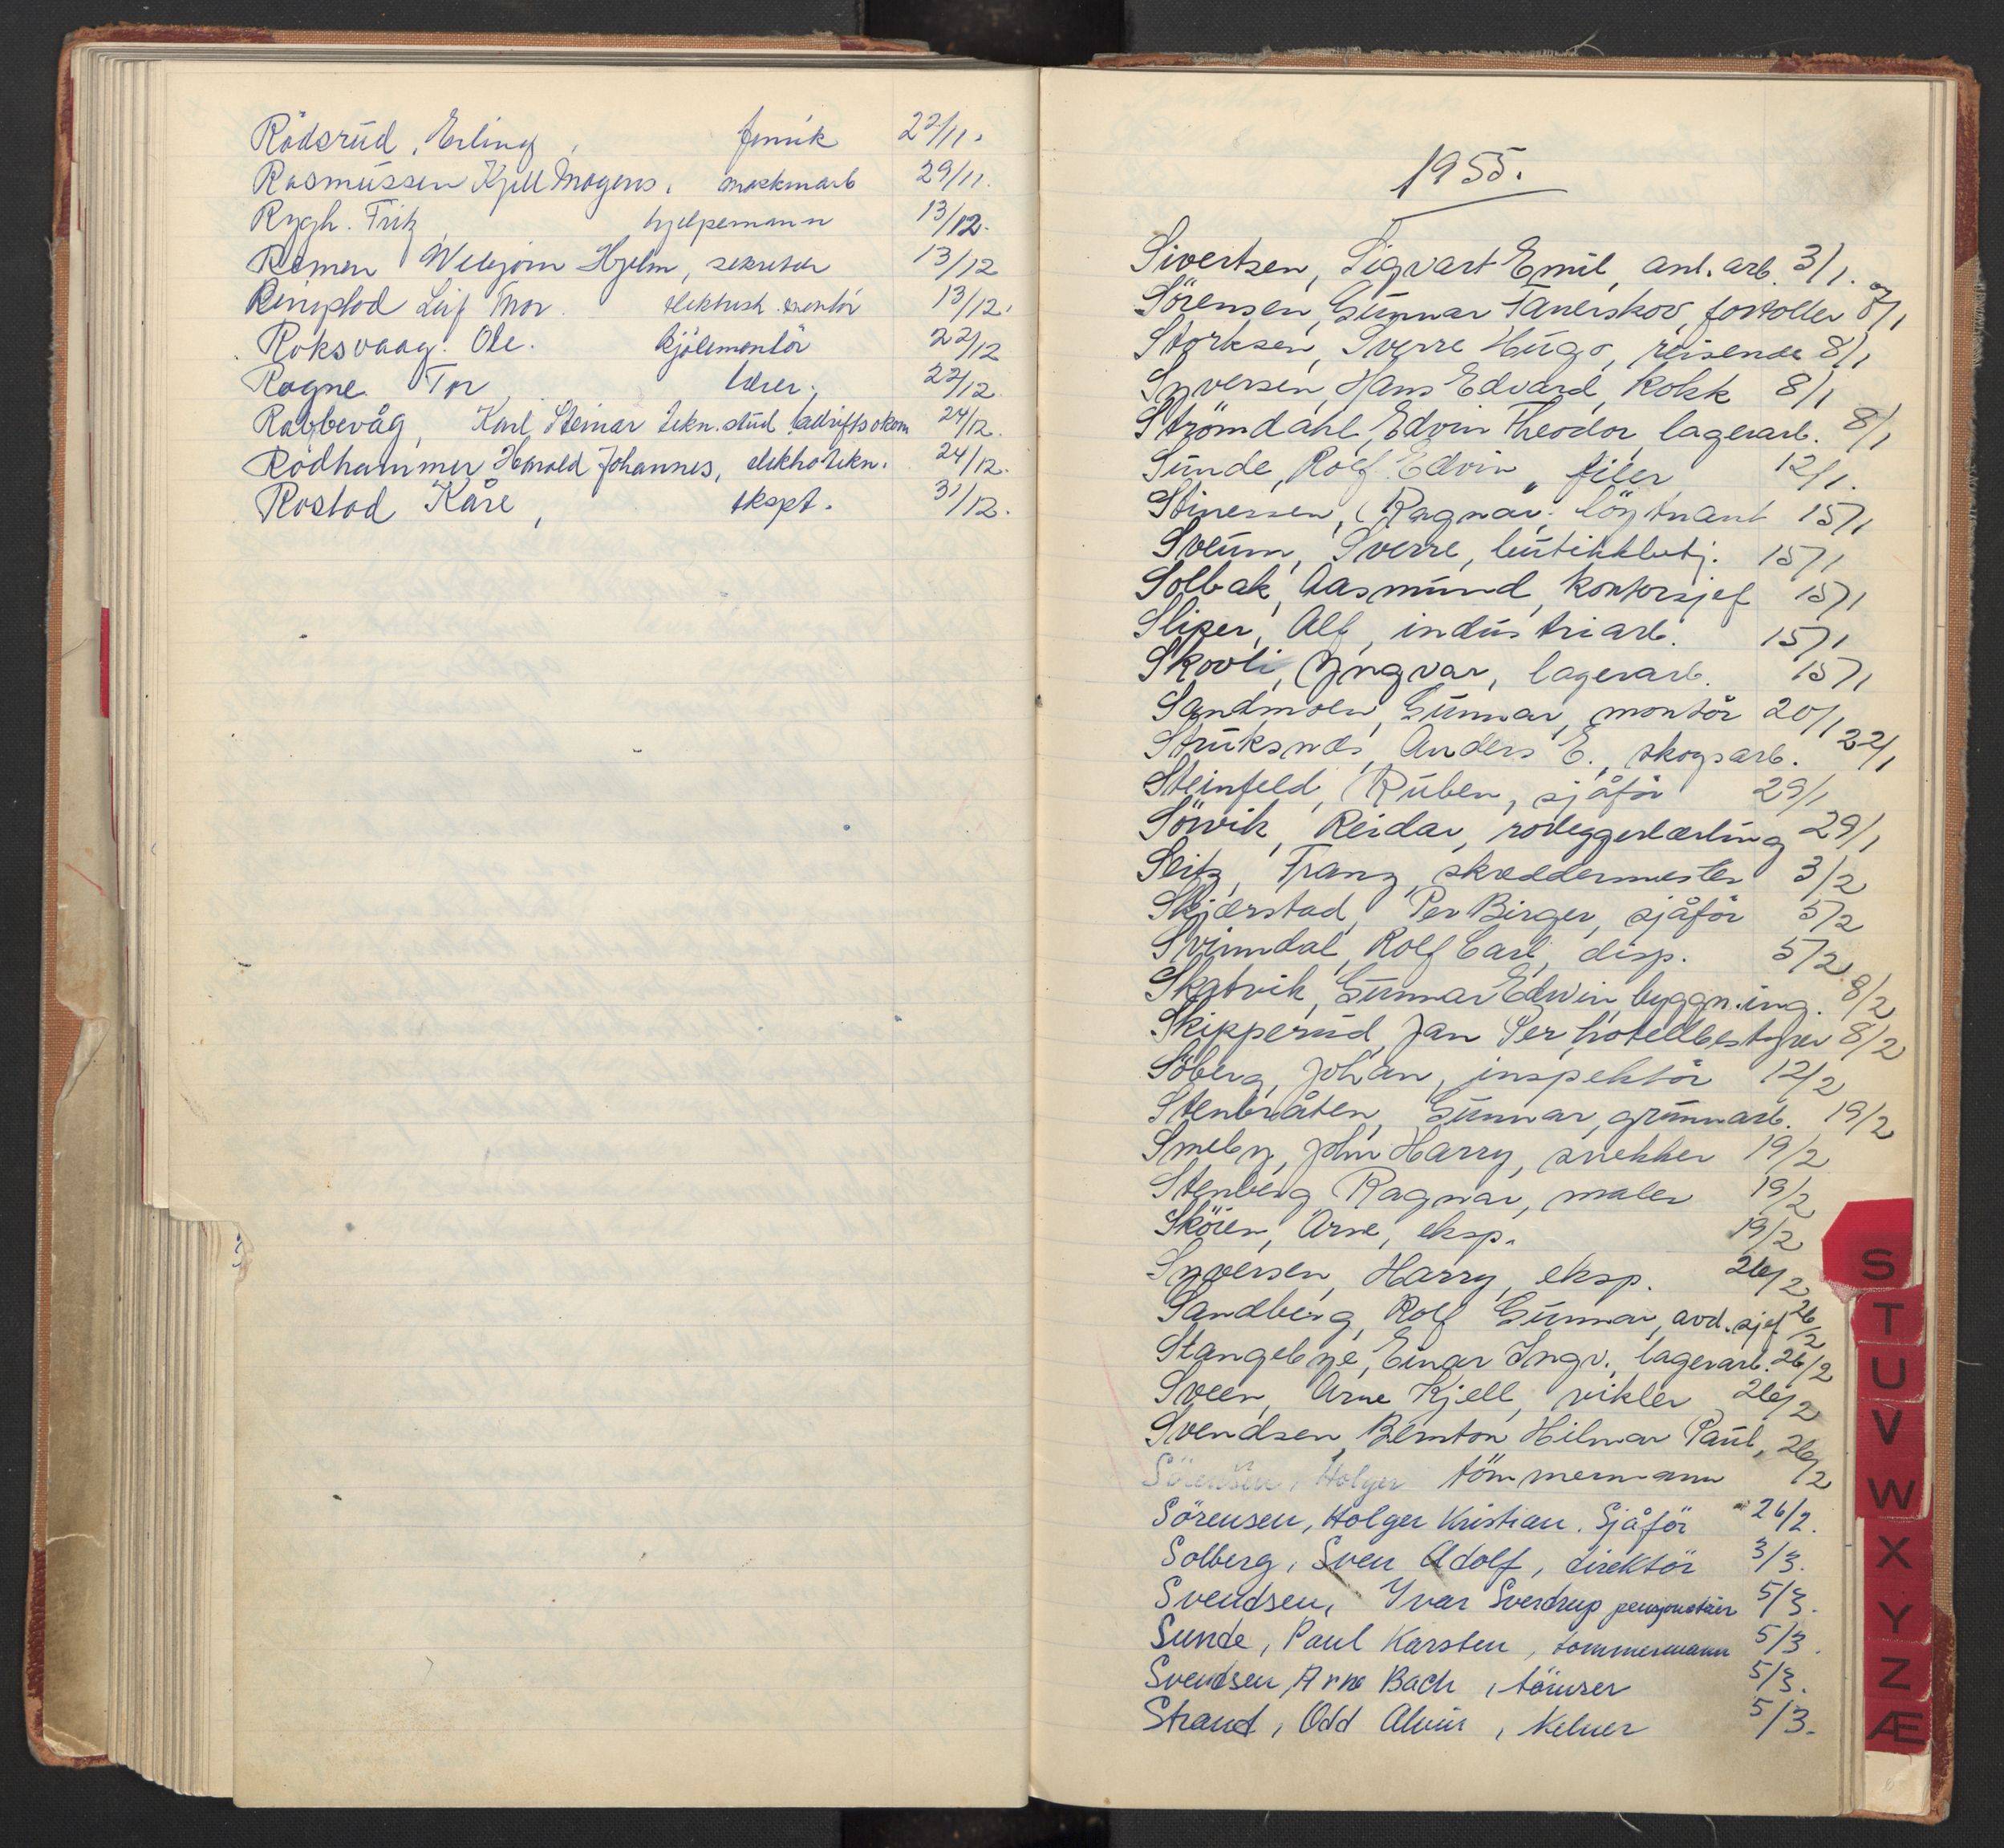 Rödsrud, Erling, fenrik 22/11.
Rasmussen Kjell Mogens, maskinarb 29/11.
Rygh. Fritz, hjelpemann 13/12.
Remen Hjelm, sekretær 13/12
Leif Thor. elektrisk montör 13/12.
Roksvaag. Ole. kjölemontör 22/12
Rogne Tor, lærer. 22/12.
Rabbevåg, Karl Steinar tekn. stud bedriftsökon 24/12.
Rödhammer Harald Johannes, elektrotekn. 24/12.
Rostad Kåre, ekspt. 31/12.
1955.
Sivertsen, Sigvart Emil, anl. arb. 3/1.
Sörensen, Gunnar Tanerskov, fortoller 8/1
Storksen, Sverre Hugo, reisende 8/1
Syversen, Hans Edvard, kokk 8/1
Strömdahl, Edvin Theodor, lagerarb. 8/1
Sunde, Rolf Edvin, filer 12/1.
Stinessen, Ragnar, löytnant 15/1
Sveum, Sverre, butikkbetj. 15/1
Solbak, Aasmund, kontorsjef 15/1
Sliper, Alf, industriarb. 15/1
Skovli, Yngvar, lagerarb. 15/1
Sandmoen, Gunnar, montör 20/1
Struksnæs, Anders E., skogsarb. 22/1
Steinfeld, Ruben, sjåför 29/1
Sörvik, Reidar, rörleggerlærling 29/1
Seitz, Franz, skreddermester 3/2
Skjærstad, Per Birger, sjåför 5/2
Svinndal, Rolf Carl, disp. 5/2
Skatvik, Gunnar Edwin, byggn.ing. 8/2
Skipperud, Jan Per, hotellbestyrer 8/2
Söberg, Johan, inspektör 12/2
Stenbråten, Gunnar, grunnarb. 19/2
Smeby, John Harry, snekker 19/2
Stenberg Ragnar, maler 19/2
Sköien, Arne, eksp. 19/2
Syversen, Harry, eksp. 26/2
Sandberg, Rolf Gunnar, avd.sjef 26/2
Stangebye, Einar Ingv. lagerarb. 26/2
Sveen, Arne Kjell, vikler 26/2
Svendsen, Bernton Hilmar Paul, 26/2
Sörensen, Holger tömmermann
Sörensen, Holger Kristian. Sjåför 26/2.
Solberg, Sven Adolf, direktör 3/3.
Svendsen, Yvar Sverdrup pensjonateier 5/3.
Sunde, Paul Karsten, tommermann 5/3.
Svendsen, Arne Bach, tömrer 5/3.
Strand, Odd Alvin, kelner 5/3.
S
T
U
V
W
X
Y
Z
Æ